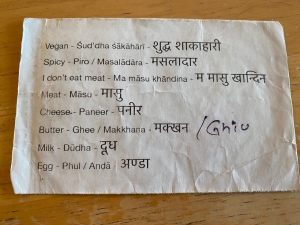 Vegan - Śud'dha śākāhārī - शुद्ध शाकाहारी
Spicy - Piro / Masalādāra - मसलादार
I don't eat meat - Ma māsu khāndina - म मासु खान्दिन
Meat - Māsu - मासु
Cheese - Paneer - पनीर
Butter - Ghee / Makkhana - मक्खन /Ghiu
Milk - Dūdha - दूध
Egg - Phul / Andā - अण्डा